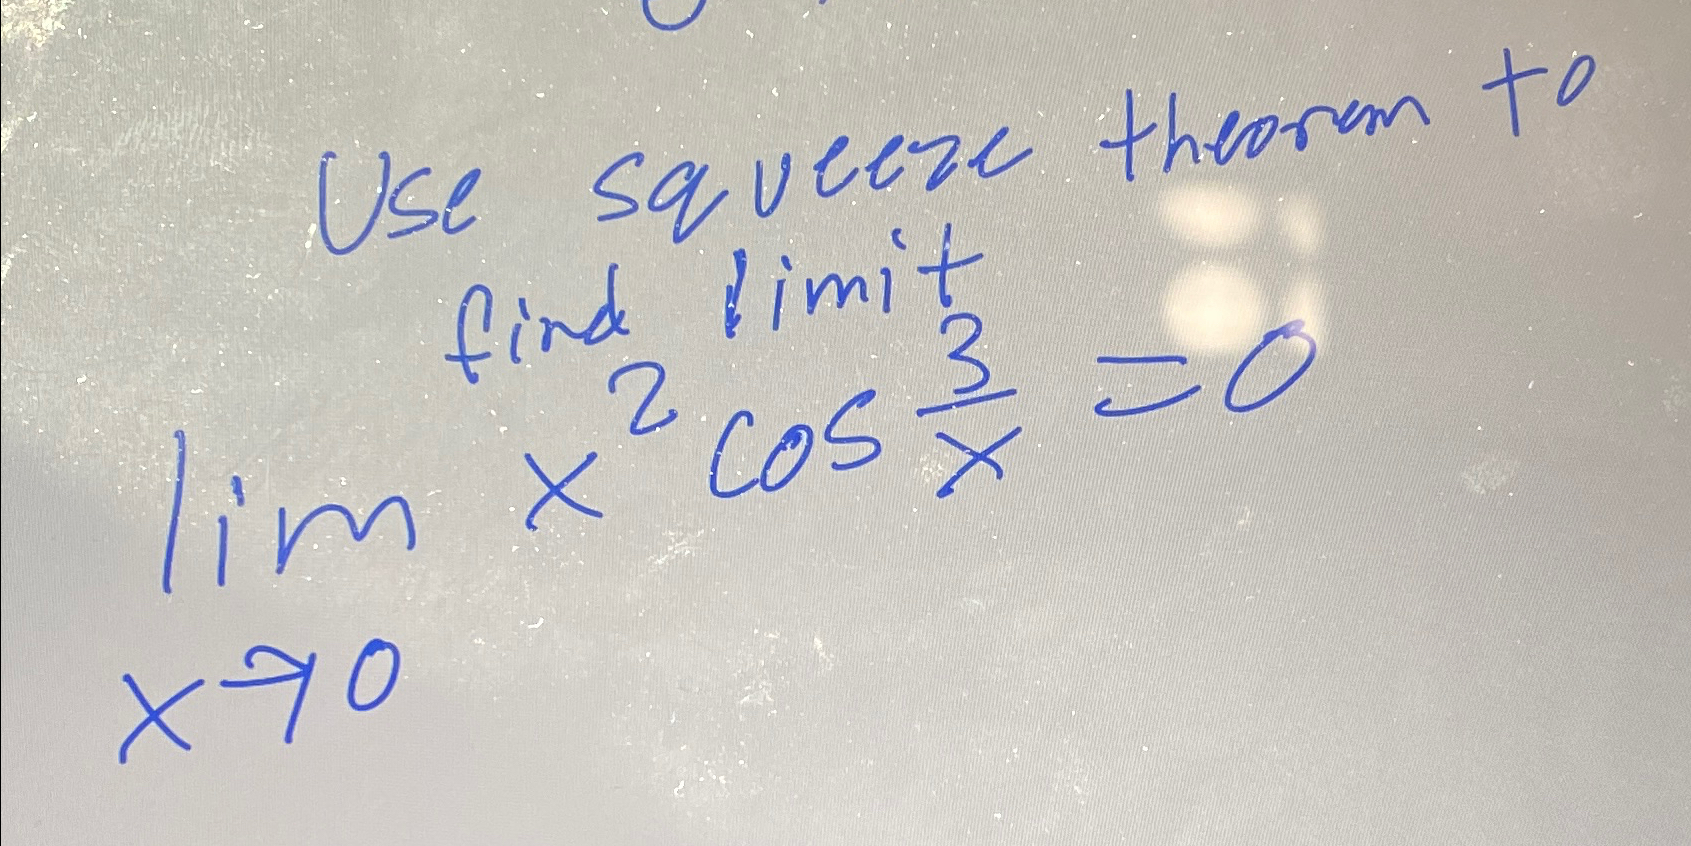 Use squeeze theorem to
find limit
lim x² cos 3/x = 0
x→0